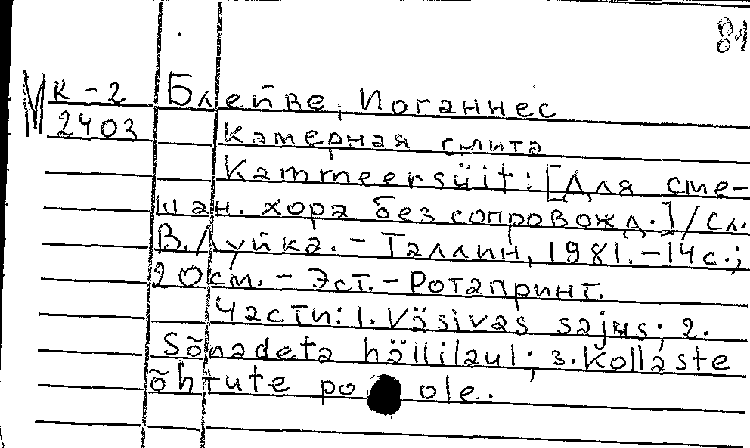 81
М К-2 Блейве, Иоганнес
2403 Камерная сюита
Kammeersüit: [Для сме-
шан. хора без сопровожд.]/Сл.
В. Луйка. - Таллин, 1981. - 14 с.;
20 см. - Эст. - Ротапринт.
Части: 1. Väsivas sajus; 2.
Sõnadeta hällilaul; 3. Kollaste
õhtute po ole.